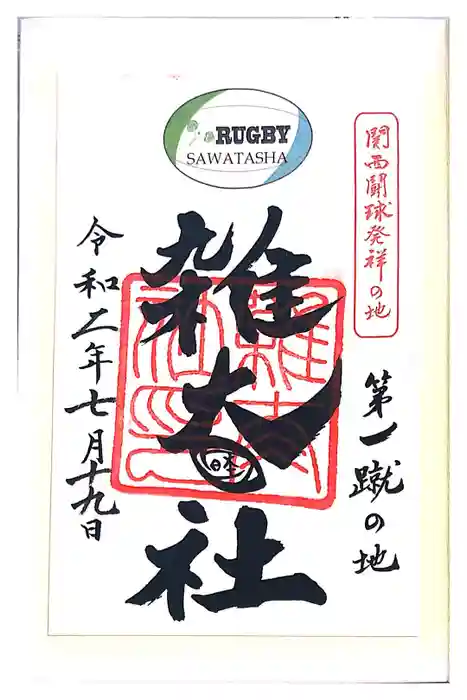 RUGBY
SAWATASHA
関西闘球発祥の地
第一蹴の地
雑太社
日本
令和二年七月十九日